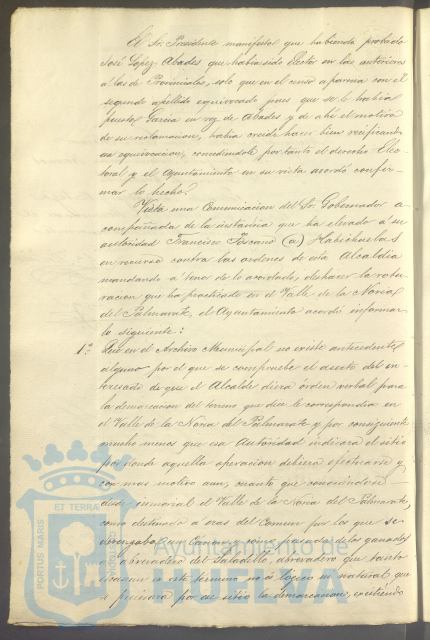 El Sr. Presidente manifestó que habiendo probado
José Lopez Abades que habia sido Elector en las anteriores
á las de Provinciales, solo que en el censo aparecia con el
segundo apellido equivocado pues que se le habia
puesto Garcia en vez de Abades y de ahi el motivo
de su reclamacion, habia creido hacer bien rectificando
la equivocacion, concediendole por tanto el derecho Elec-
toral y el Ayuntamiento en su vista acordó confir-
mar lo hecho.
Vista una Comunicacion del Sr. Gobernador a-
compañada de la instancia que ha elevado á su
autoridad Francisco Toscano (a) Habichuelas
en recurso contra las ordenes de esta Alcaldia
mandando á tenor de lo acordado, deshacer la rotu-
racion que ha practicado en el Valle de la Noria
del Palmarete, el Ayuntamiento acordó informar
lo siguiente:
1.º Que en el Archivo Municipal no existe antecedente
alguno por el que se compruebe el aserto del in-
teresado de que el Alcalde diera órden verbal para
la demarcacion del terreno que dice le correspondia en
el Valle de la Noria del Palmarete y por consiguiente
mucho menos que esa Autoridad indicara el sitio
por donde aquella operacion debiera efectuarse y
con mas motivo aun, cuanto que
desde inmemorial el Valle de la Noria del Palmarete,
como destinado á eras del Comun por los que se
devengaba un Cánon y como pasada de los ganados
al abrevadero del Saladillo, abrevadero que tanto
escasean en este termino no es lógico ni natural que
se hiciera por ese sitio la demarcacion, existiendo
PORTUS MARIS
ET TERRAE
Ayuntamiento de
HUELVA